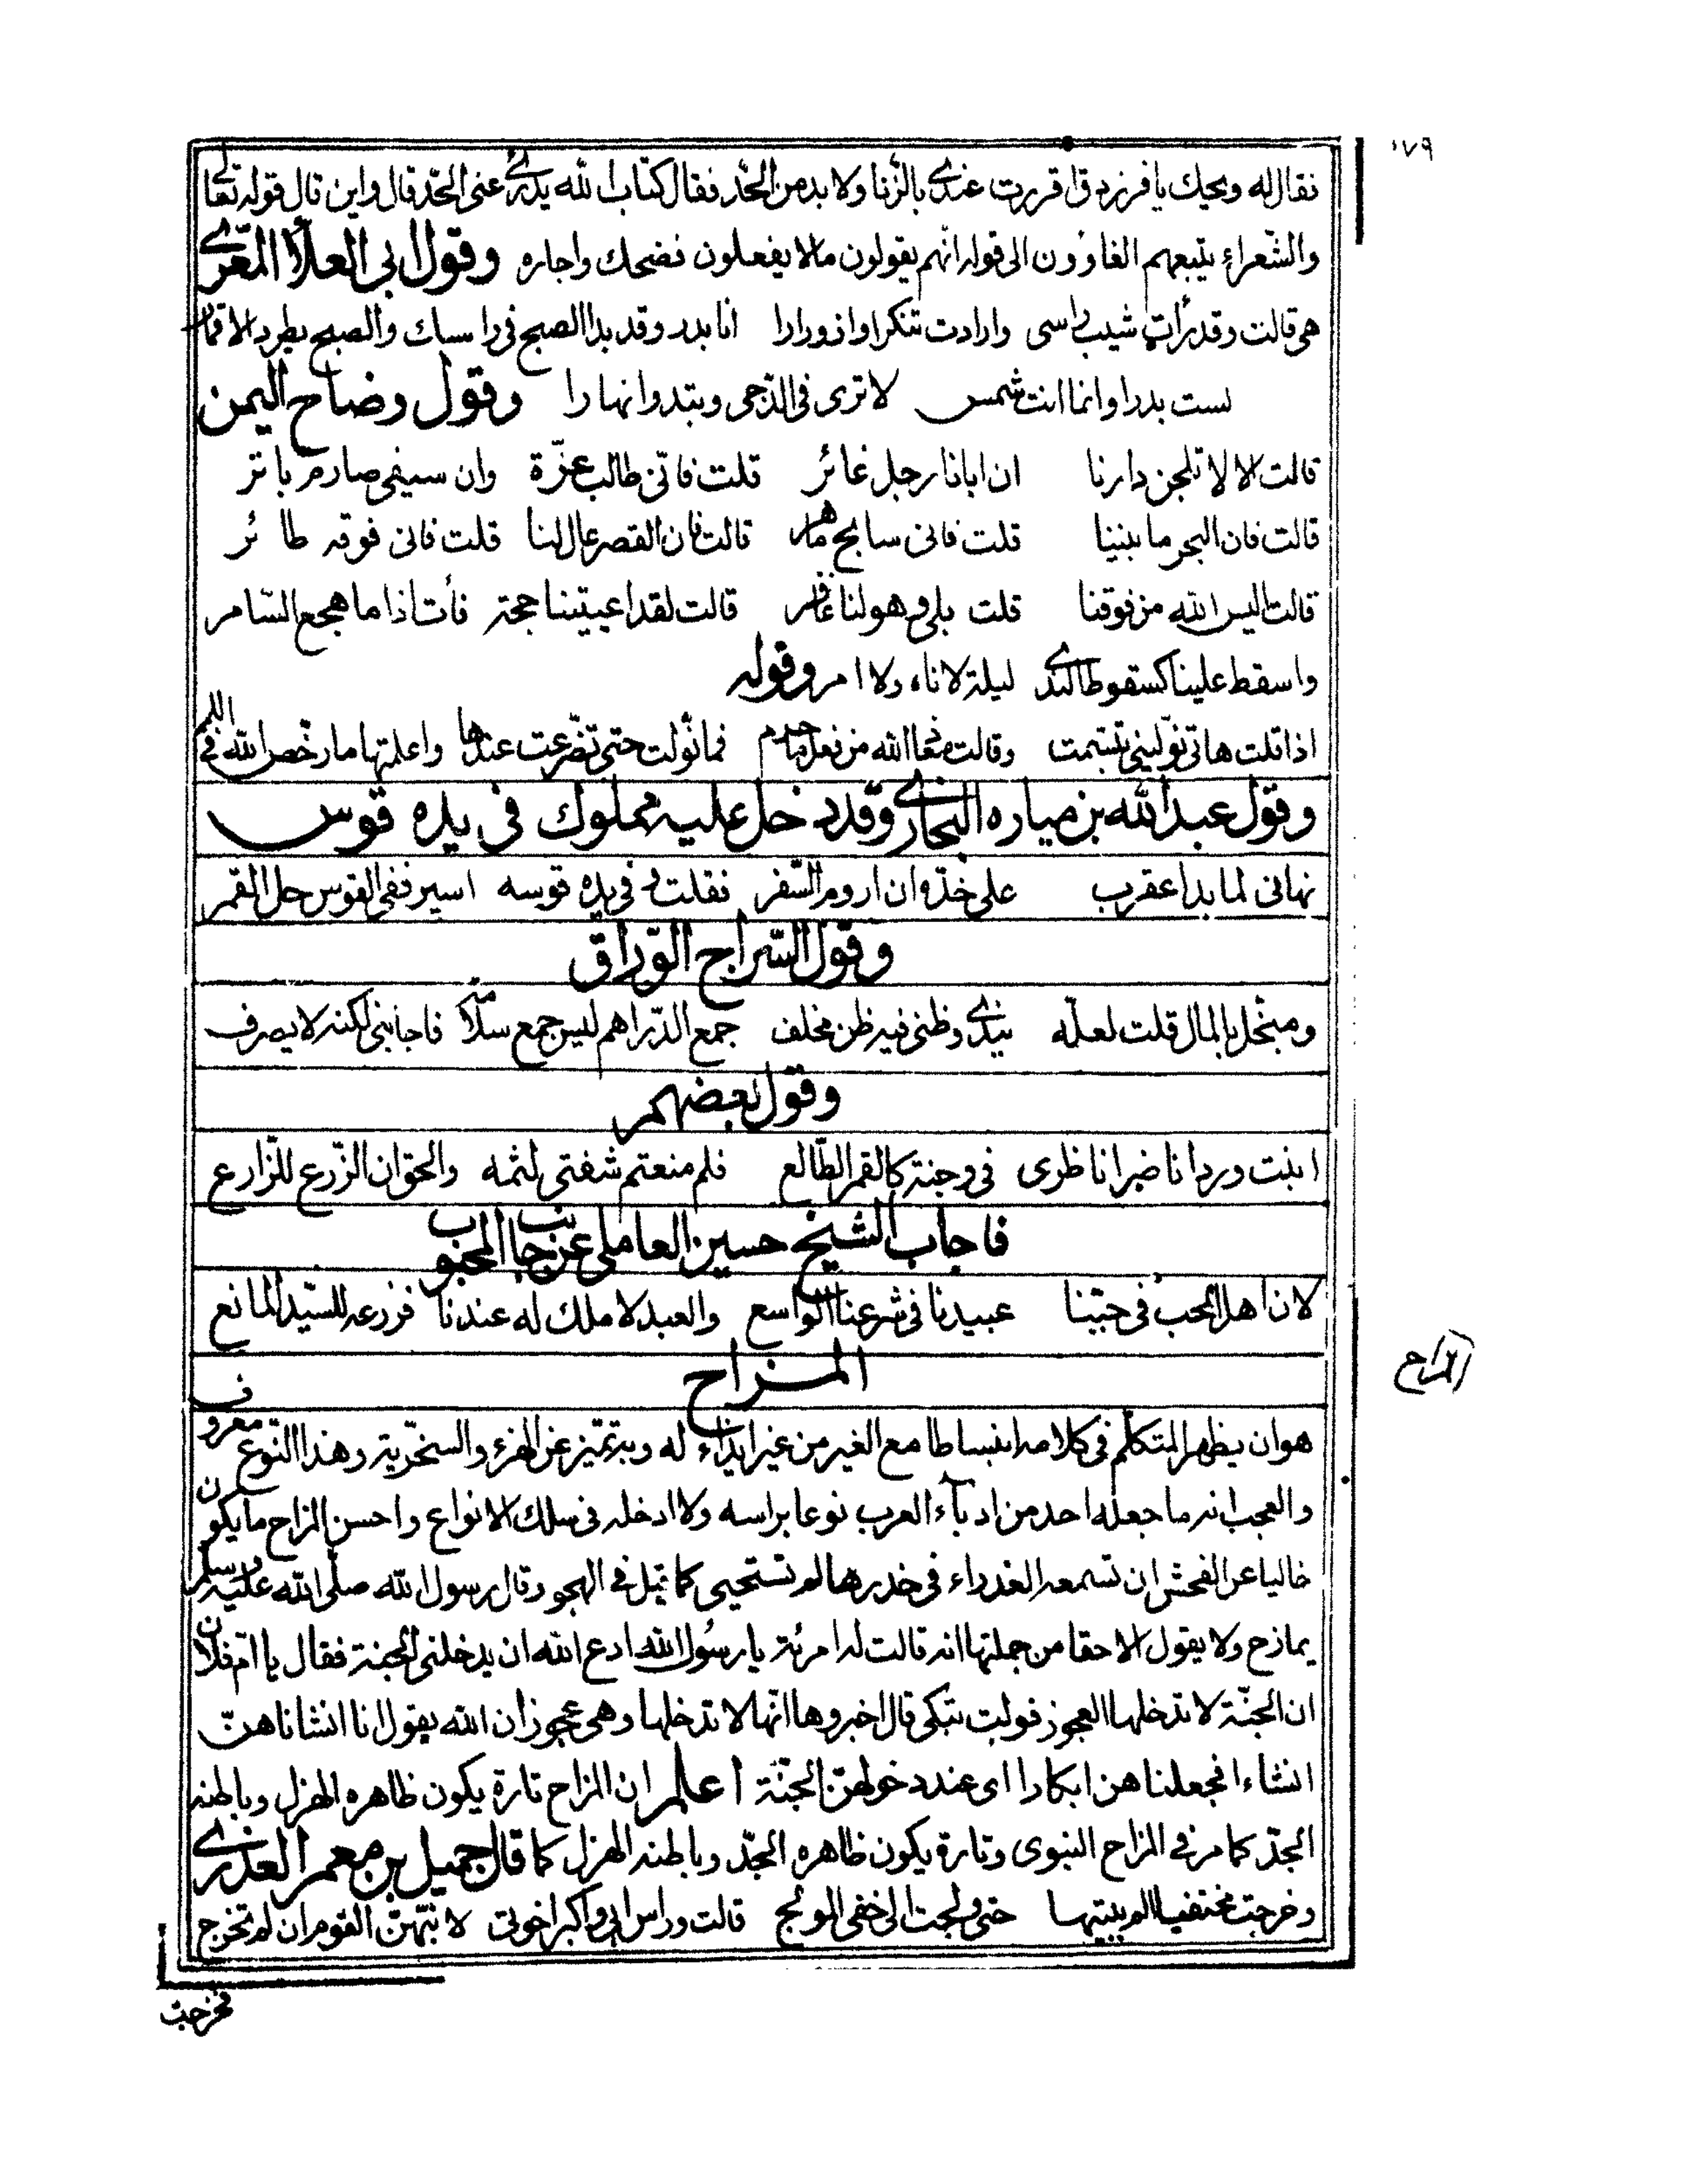 ١٧٩
فقال له ويحك يا فرزدق اقررت عندي بالزنا ولا بد من الحد فقال كتاب الله يدرئ عنى الحد قال واين قال قوله تعالى
والشعراء يتبعهم الغاوون الى قوله انهم يقولون ما لا يفعلون فضحك واجاره وقول ابى العلا المعرى
هى قالت وقد رأت شيب راسى وارادت تنكرا وازورارا انا بدر وقد بدا الصبح فى راسك والصبح يطرد الاقمار
لست بدرا وانما انت شمس لا ترى فى الدجى وتبدو انهارا وقول وضاح اليمن
قالت لا لا تلجن دارنا ان ابانا رجل غائر قلت فانى طالب غرة وان سيفى صارم باتر
قالت فان البحر ما بيننا قلت فانى سابح ماهر قالت فان القصر عال لنا قلت فانى فوقه طائر
قالت اليس الله من فوقنا قلت بلى وهو لنا غافر قالت لقد اعييتنا حجة فأت اذا ما هجع السامر
واسقط علينا كسقوط الندى ليلة لا ناه ولا امر وقوله
اذا قلت هاتى نولينى تبسمت وقالت معاذ الله من فعل ما حرم فما نولت حتى تضرعت عندها واعلمتها ما رخص الله فى اللمم
وقول عبد الله بن صياره البخارى وقد دخل عليه مملوك فى يده قوس
نهانى لما بدا عقرب على خده ان اروم السفر فقلت وفى يده قوسه اسير ففى القوس حل القمر
وقول السراج الوراق
ومبخل بالمال قلت لعله يندى وظنى فيه ظن مخلف جمع الدراهم ليس جمع سلامة فاجابنى لكنه لا يصرف
وقول بعضهم
انبت وردا ناضرا ناظرى فى وجنة كالقمر الطالع فلم منعتم شفتى لثمه والحق ان الزرع للزارع
فاجاب الشيخ حسين العاملى عن جانب المحبوب
لان اهل الحب فى حبنا عبيدنا فى شرعنا الواسع والعبد لا ملك له عندنا فزرعه للسيد المانع
المزاح
المزاح
هو ان يظهر المتكلم فى كلامه انبساطا مع الغير من غير ايذاء له وبه تميز عن الهزء والسخرية وهذا النوع معروف
والعجب انه ما جعله احد من ادباء العرب نوعا براسه ولا ادخله فى سلك الانواع واحسن المزاح ما يكون
خاليا عن الفحش ان تسمعه العذراء فى خدرها لم تستحيى كما قيل فى الهجو وقال رسول الله صلى الله عليه وسلم
يمازح ولا يقول الا حقا من جملتها انه قالت له امرئة يا رسول الله ادع الله ان يدخلنى الجنة فقال يا ام فلان
ان الجنة لا تدخلها العجوز فولت تبكى قال اخبروها انها لا تدخلها وهى عجوز ان الله يقول انا انشاناهن
انشاء فجعلناهن ابكارا اى عند دخولهن الجنة اعلم ان المزاح تارة يكون ظاهره الهزل وباطنه
الجد كما مر فى المزاح النبوى وتارة يكون ظاهره الجد وباطنه الهزل كما قال جميل بن معمر العذرى
وخرجت مختفيا الم ببيتها حتى ولجت الى خفى المولج قالت وراس ابى واكبر اخوتى لا نبهن القوم ان لم تخرج
فخرجت